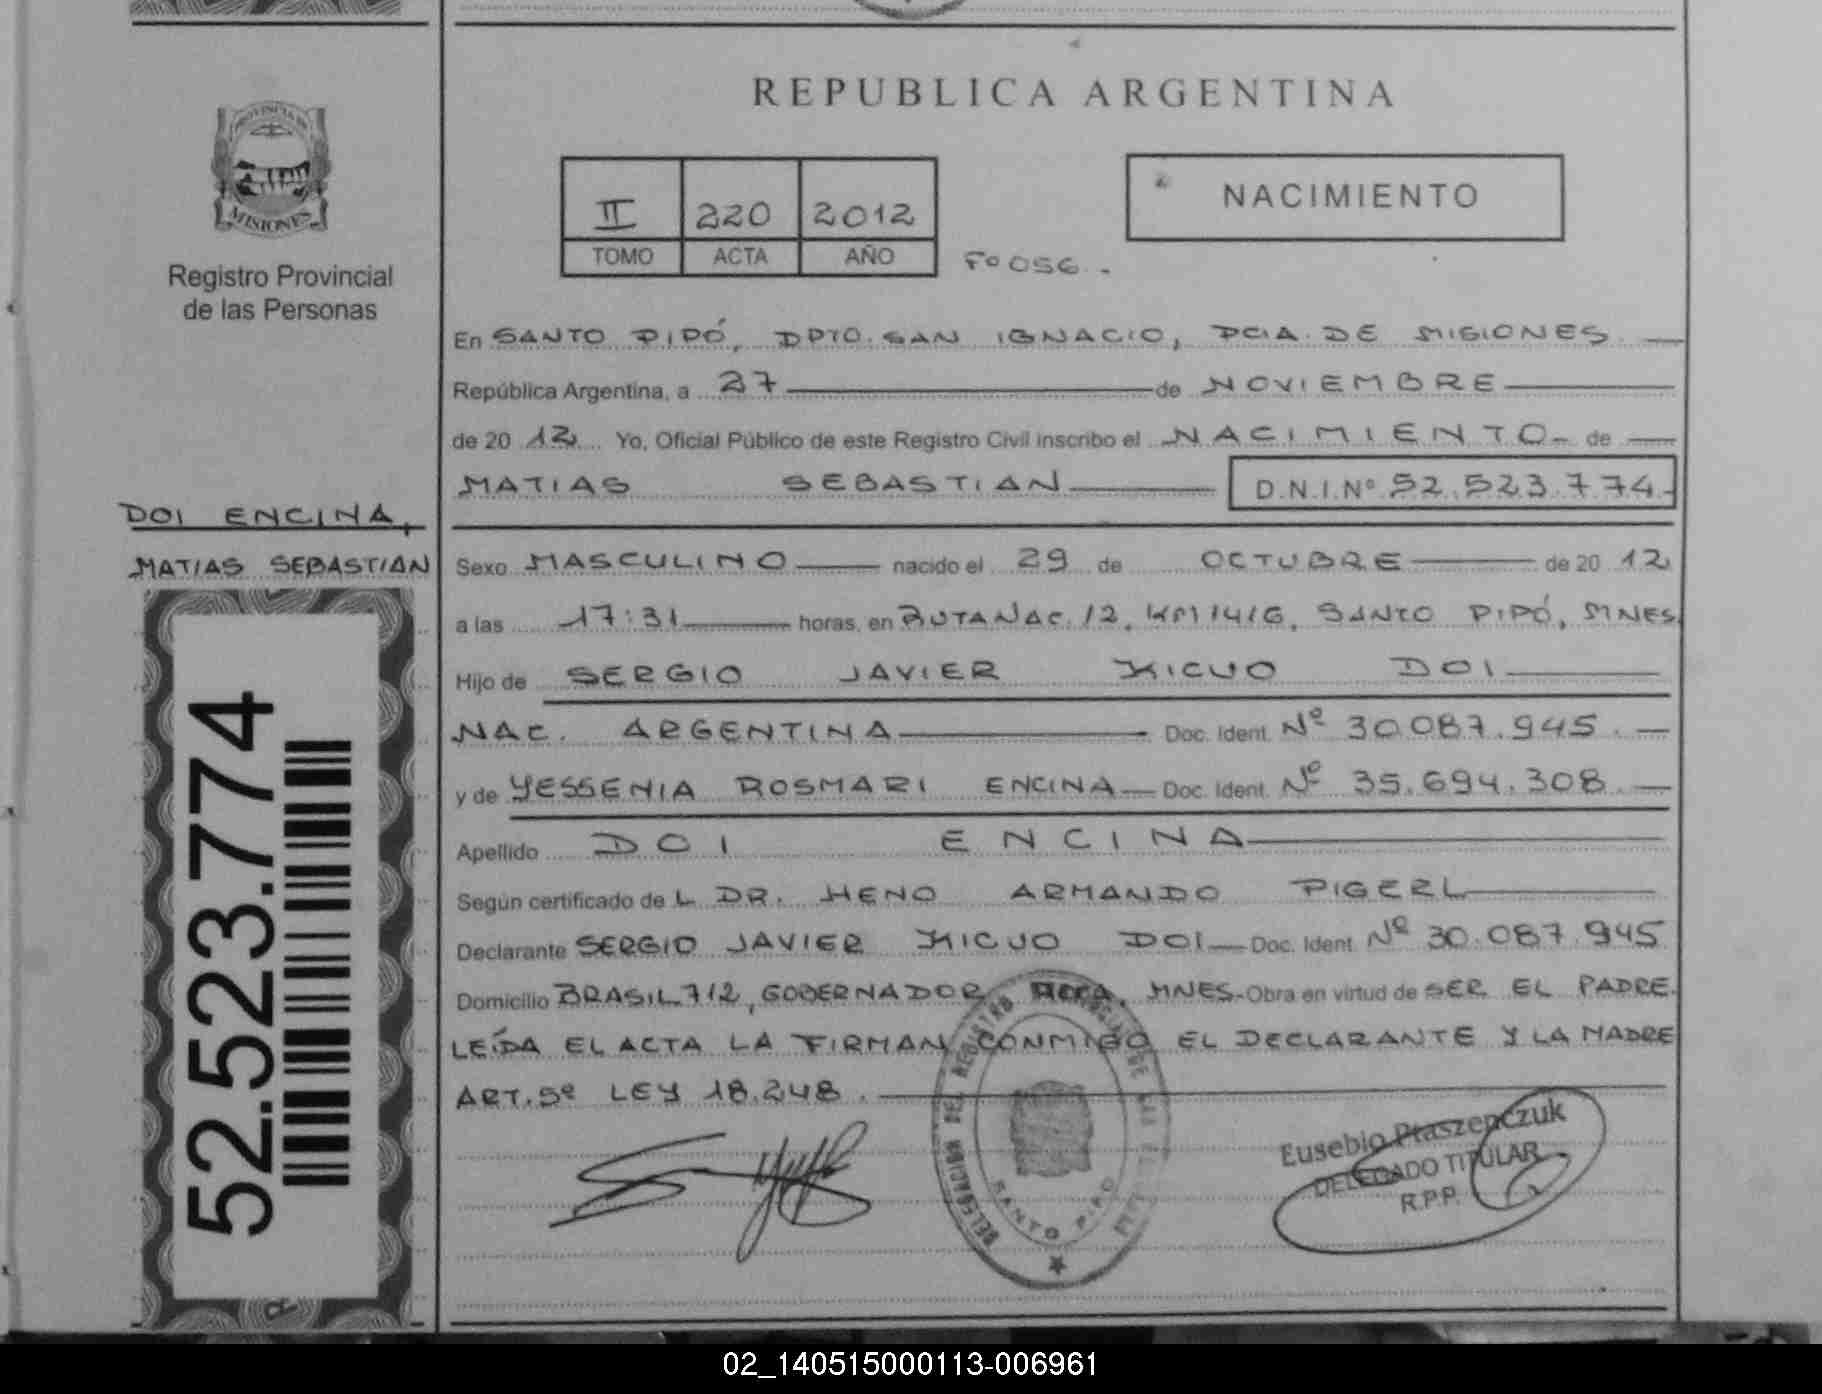 PROVINCIA DE
MISIONES
Registro Provincial
de las Personas
DOI ENCINA,
MATIAS SEBASTIAN
52.523.774
REPUBLICA ARGENTINA
II 220 2012
TOMO ACTA AÑO
Fo 056.-
NACIMIENTO
En SANTO PIPÓ, DPTO. SAN IGNACIO, PCIA. DE MISIONES
República Argentina, a 27 de NOVIEMBRE
de 20 12 Yo, Oficial Público de este Registro Civil inscribo el NACIMIENTO de
MATIAS SEBASTIAN D.N.I.Nº 52.523.774-
Sexo MASCULINO nacido el 29 de OCTUBRE de 20 12
a las 17:31 horas, en RUTA NAC. 12, KM 1416, SANTO PIPÓ, MNES
Hijo de SERGIO JAVIER KICUO DOI
NAC. ARGENTINA Doc. Ident. Nº 30.087.945.
y de YESSENIA ROSMARI ENCINA Doc. Ident. Nº 35.694.308
Apellido DOI ENCINA
Según certificado de L DR. HENO ARMANDO PIGERL
Declarante SERGIO JAVIER KICUO DOI Doc. Ident. Nº 30.087.945
Domicilio BRASIL 712, GOBERNADOR ROCA, MNES. Obra en virtud de SER EL PADRE.
LEÍDA EL ACTA LA FIRMAN CONMIGO EL DECLARANTE Y LA MADRE
ART. 5º LEY 18.248.
DELEGACION DEL REGISTRO PROVINCIAL DE LAS
SANTO PIPO
Eusebio Ptaszenczuk
DELEGADO TITULAR
R.P.P.
02_140515000113-006961